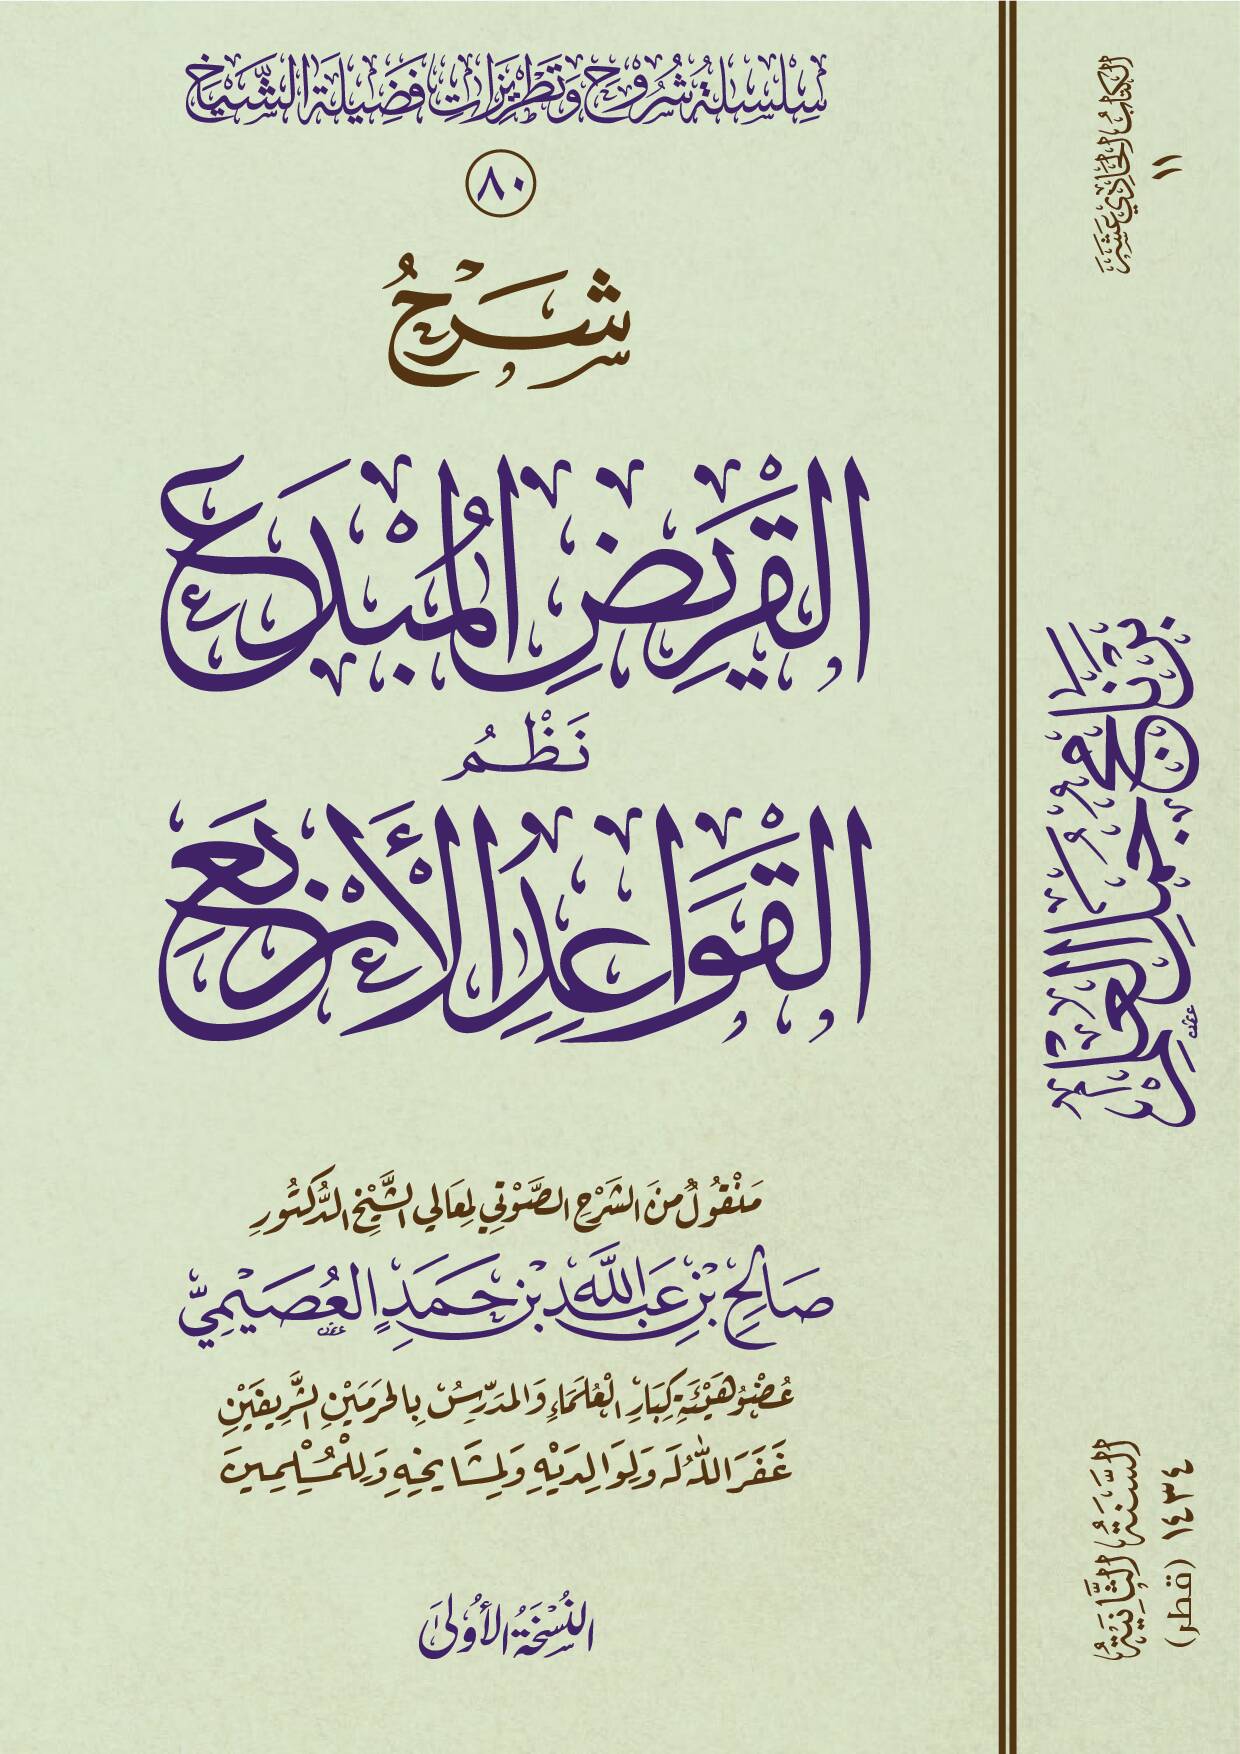 سِلْسِلَةُ شُرُوحِ وَتَطْرِيزَاتِ فَضِيلَةِ الشَّيْخِ
٨٠
شَرْحُ
القَرِيضِ المُبْدَعِ
نَظْمُ
القَوَاعِدِ الأَرْبَعِ
مَنْقُولٌ مِنَ الشَّرْحِ الصَّوْتِي لِمَعَالِي الشَّيْخِ الدُّكْتُورِ
صَالِحِ بْنِ عَبْدِ اللَّهِ بْنِ حَمَدٍ العُصَيْمِيِّ
عُضْوُ هَيْئَةِ كِبَارِ الْعُلَمَاءِ وَالمدَرِّسُ بِالحَرَمَيْنِ الشَّرِيفَيْنِ
غَفَرَ اللَّهُ لَهُ وَلِوَالِدَيْهِ وَلِمَشَايِخِهِ وَلِلْمُسْلِمِينَ
النُّسْخَةُ الأُولَى
الكِتَابُ الحَادِي عَشَرَ
١١
بَرْنَامَجُ جُمَلِ العِلْمِ
السَّنَةُ الثَّانِيَةُ
١٤٣٤ (قطر)